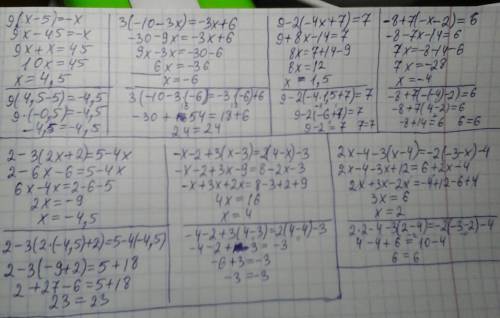 9(x-5)=-x
9x-45=-x
9x+x=45
10x=45
x=4,5
9(4,5-5)=-4,5
9·(-0,5)=-4,5
-4,5=-4,5
3(-10-3x)=-3x+6
-30-9x=-3x+6
9x-3x=-30-6
6x=-36
x=-6
3(-10-3·(-6)=-3·(-6)+6
-30+54=18+6
24=24
9-2(-4x+7)=7
9+8x-14=7
8x=7+14-9
8x=12
x=1,5
9-2(-4·1,5+7)=7
9-2(-6+7)=7
9-2=7 7=7
-8+7(-x-2)=6
-8-7x-14=6
7x=-8-14-6
7x=-28
x=-4
-8+7(-(-4)-2)=6
-8+7(4-2)=6
-8+14=6 6=6
2-3(2x+2)=5-4x
2-6x-6=5-4x
6x-4x=2-6-5
2x=-9
x=-4,5
2-3(2·(-4,5)+2)=5-4(-4,5)
2-3(-9+2)=5+18
2+27-6=5+18
23=23
-x-2+3(x-3)=2(4-x)-3
-x-2+3x-9=8-2x-3
-x+3x+2x=8-3+2+9
4x=16
x=4
-4-2+3(4-3)=2(4-4)-3
-4-2+3=-3
-6+3=-3
-3=-3
2x-4-3(x-4)=-2(-3-x)-4
2x-4-3x+12=6+2x-4
2x+3x-2x=-4+12-6+4
3x=6
x=2
2·2-4-3(2-4)=-2(-3-2)-4
4-4+6=10-4
6=6